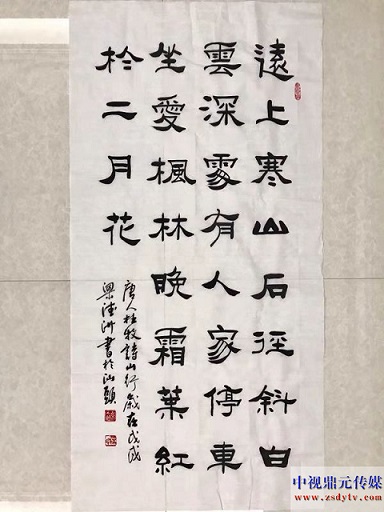 遠上寒山石径斜白
雲深處有人家停東
坐愛楓林晚霜葉紅
於二月花
唐人杜牧詩山行歲在戊戌
梁洲書於汕頭
中视鼎元传媒
www.zsdytv.com